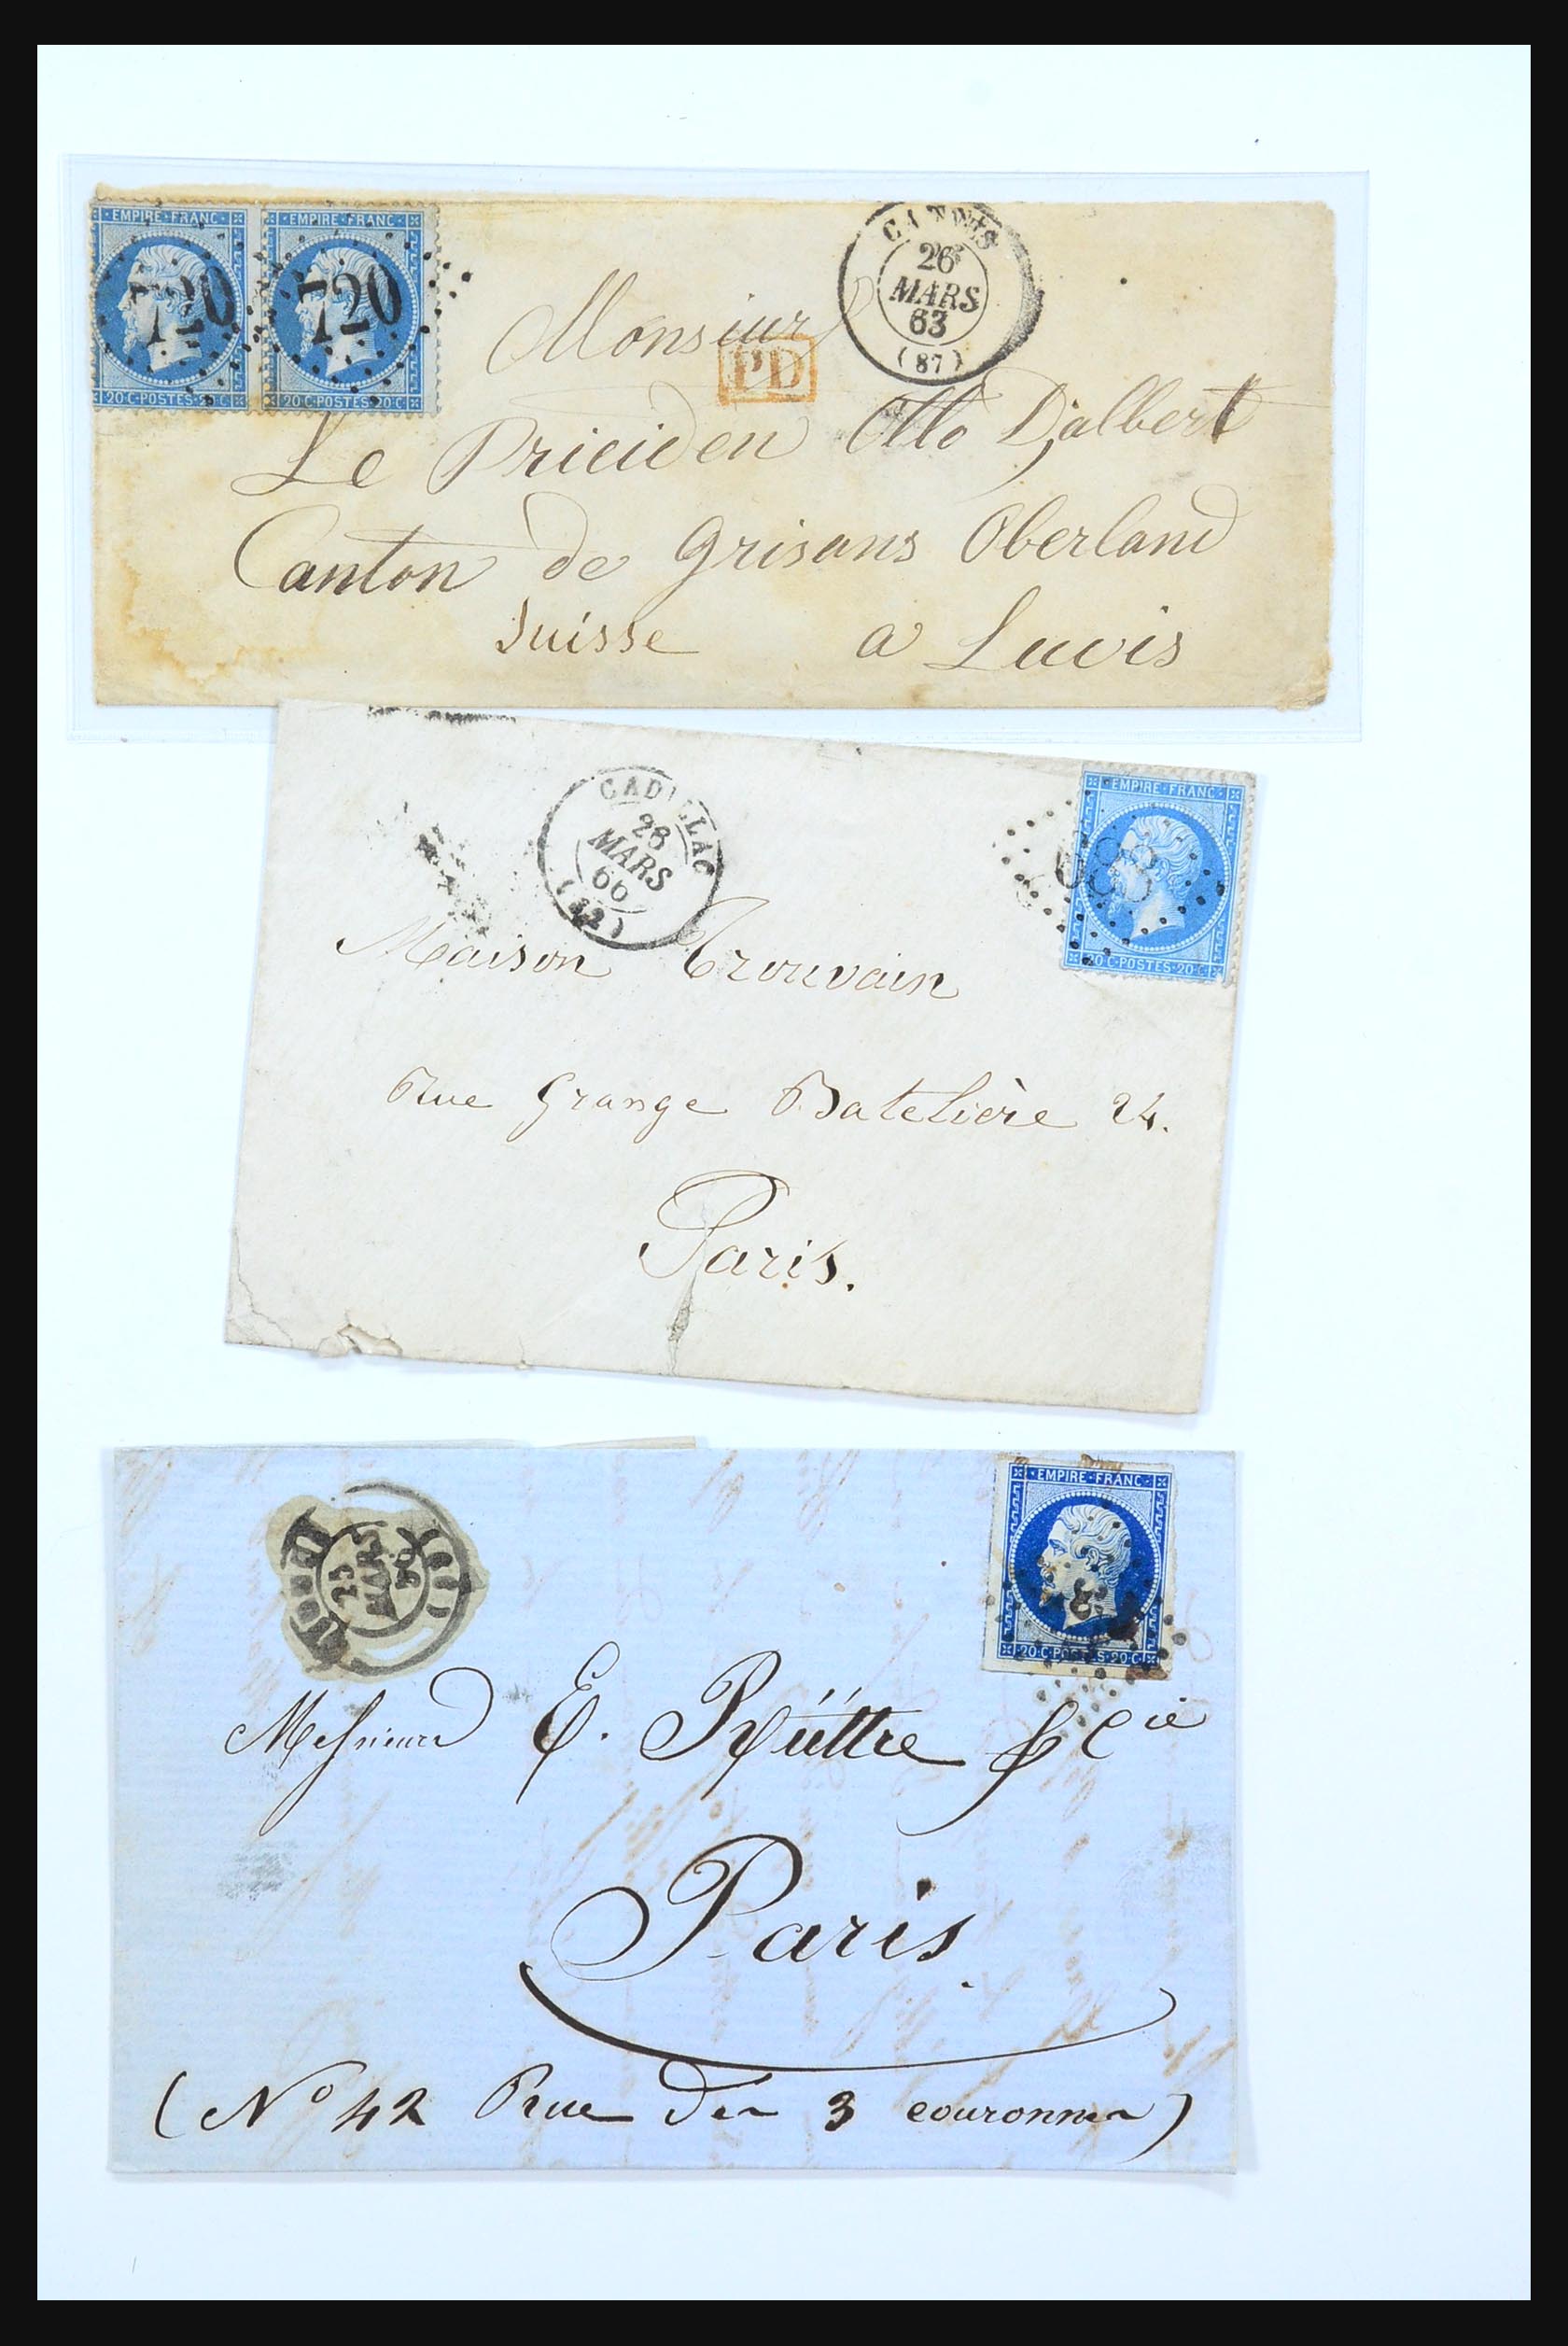 EMPIRE·FRANC·
20·C·POSTES·20·C
720
EMPIRE·FRANC·
20·C·POSTES·20·C
720
26
MARS
63
(87)
PD
Monsieur
Le Priciden Otto D'albert
Canton de Grisans Oberland
Suisse a Luvis
CADILLAC
28
MARS
66
(32)
EMPIRE·FRANC·
20·C·POSTES·20·C
688
Maison Trouvain
Rue Grange Batelière 24.
Paris.
MARS
EMPIRE·FRANC·
20·C·POSTES·20·C
Messieurs E. Rüttre & Cie
Paris.
(No 42 Rue des 3 couronnes)